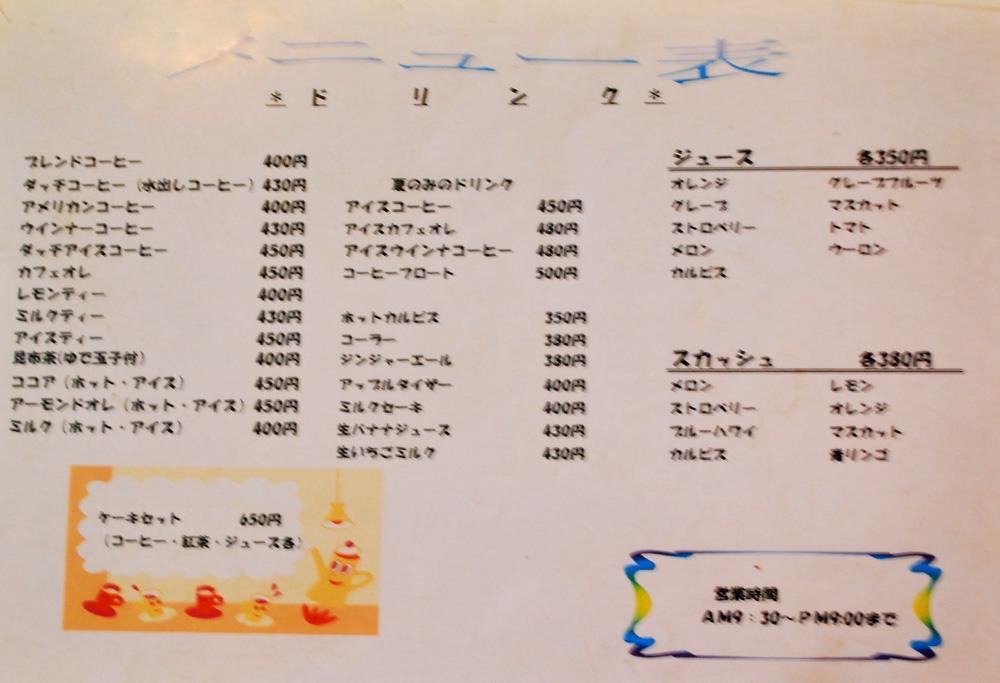 メニュー表
＊ドリンク＊
ブレンドコーヒー 400円
ダッチコーヒー（水出しコーヒー）430円
アメリカンコーヒー 400円
ウインナーコーヒー 430円
ダッチアイスコーヒー 450円
カフェオレ 450円
レモンティー 400円
ミルクティー 430円
アイスティー 450円
昆布茶(ゆで玉子付) 400円
ココア（ホット・アイス） 450円
アーモンドオレ（ホット・アイス）450円
ミルク（ホット・アイス） 400円
夏のみのドリンク
アイスコーヒー 450円
アイスカフェオレ 480円
アイスウインナコーヒー 480円
コーヒーフロート 500円
ホットカルピス 350円
コーラー 380円
ジンジャーエール 380円
アップルタイザー 400円
ミルクセーキ 400円
生バナナジュース 430円
生いちごミルク 430円
ジュース 各350円
オレンジ グレープフルーツ
グレープ マスカット
ストロベリー トマト
メロン ウーロン
カルピス
スカッシュ 各380円
メロン レモン
ストロベリー オレンジ
ブルーハワイ マスカット
カルピス 青リンゴ
ケーキセット 650円
（コーヒー・紅茶・ジュース各）
営業時間
AM9：30～PM9:00まで